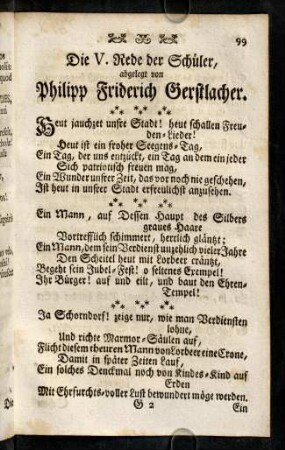 99
Die V. Rede der Schüler,
abgelegt von
Philipp Friderich Gerstlacher.
Heut jauchzet unsre Stadt! heut schallen Freu-
den-Lieder!
Heut ist ein froher Seegens-Tag,
Ein Tag, der uns entzückt, ein Tag an dem ein jeder
Sich patriotisch freuen mag,
Ein Wunder unsrer Zeit, das vor noch nie geschehen,
Ist heut in unsrer Stadt erfreulichst anzusehen.
Ein Mann, auf Dessen Haupt des Silbers
graues Haare
Vortrefflich schimmert, herrlich gläntzt;
Ein Mann, dem sein Verdienst unzehlich vieler Jahre
Den Scheitel heut mit Lorbeer cräntzt,
Begeht sein Jubel-Fest! o seltenes Exempel!
Ihr Bürger! auf und eilt, und baut den Ehren-
Tempel!
Ja Schorndorf! zeige nur, wie man Verdiensten
lohne,
Und richte Marmor-Säulen auf,
Flicht diesem theuren Mann von Lorbeer eine Crone,
Damit in später Zeiten Lauf,
Ein solches Denckmal noch von Kindes-Kind auf
Erden
Mit Ehrfurchts-voller Lust bewundert möge werden.
G 2
Ein